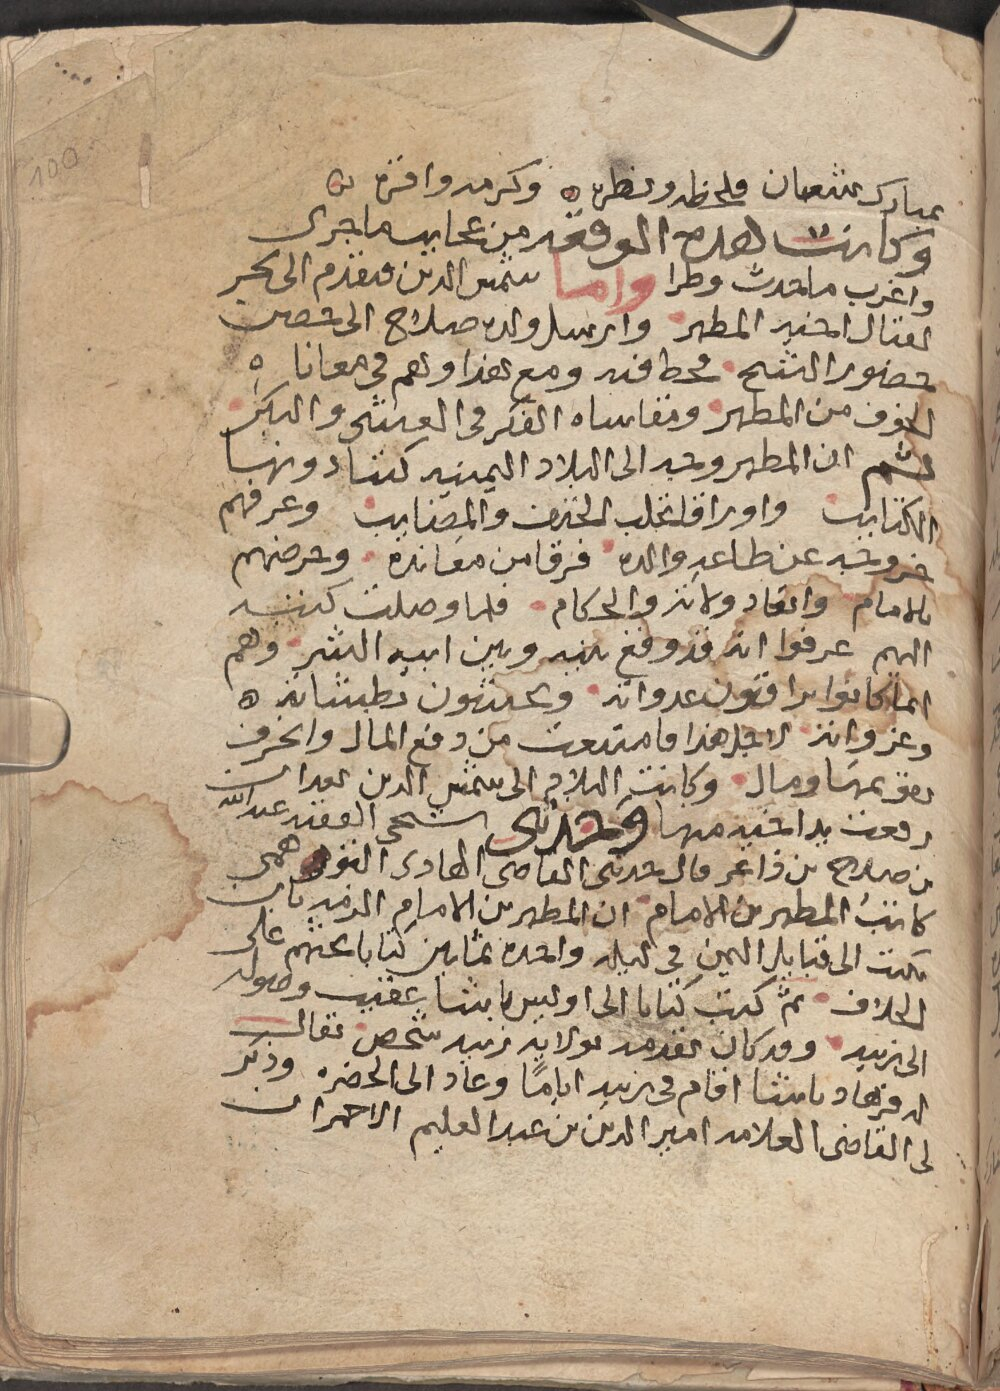 100
مبارك شعبان فلحظه ونظره وكرمه وافره
وكانت لهذه الوقعة من عجايب ما جرى
واغرب ما حدث وطرا واما شمس الدين فتقدم الى
لقتال اخيه المطهر وارسل ولده صلاح الى حصن
حضور الشيخ فحط فيه ومع هذا وهم في معانا
الخوف من المطهر ومقاساه الفكر في العشي والبكر
ثم ان المطهر وجه الى البلاد اليمنية كتبا دونها
الكتايب واوراقا تجلب الحتوف والمصايب وعرفهم
خروجه عن طاعة والده فرقا من معانده وحرضهم
بالامام وابعاد ولاته والحكام فلما وصلت كتبه
اليهم عرفوا انه قد وقع بينه وبين ابيه الشر وهم
انما كانوا يراقبون عدوانه ويخشون بطشاته
وغزواته لاجل هذا فامتنعت من دفع المال وانحرف
بعضها ومال وكانت البلاد الى شمس الدين بعد ان
رفعت يد اخيه منها وحدثني شيخي الفقيه عبدالله
بن صلاح بن داعر قال حدثني القاضي الهادي
كاتب المطهر بن الامام ان المطهر بن الامام الزمه بان
يكتب الى قبايل اليمن في ليله واحده ثمانين كتابا يحثهم على
الخلاف ثم كتب كتابا الى اويس باشا عقيب وصوله
الى زبيد وقد كان تقدمه بولاية زبيد شخص يقال
له فرهاد باشا اقام في زبيد اياما وعاد الى الحضره وذكر
لي القاضي العلامه امير الدين بن عبد العليم الاحمر ان